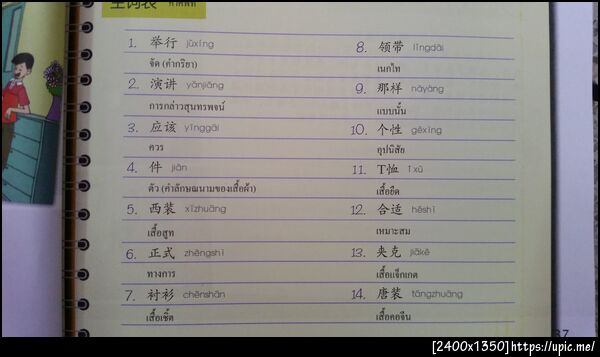 生词表 คำศัพท์
1. 举行 jǔxíng
จัด (คำกริยา)
2. 演讲 yǎnjiǎng
การกล่าวสุนทรพจน์
3. 应该 yīnggāi
ควร
4. 件 jiàn
ตัว (คำลักษณนามของเสื้อผ้า)
5. 西装 xīzhuāng
เสื้อสูท
6. 正式 zhèngshì
ทางการ
7. 衬衫 chènshān
เสื้อเชิ้ต
8. 领带 lǐngdài
เนกไท
9. 那样 nàyàng
แบบนั้น
10. 个性 gèxìng
อุปนิสัย
11. T恤 T xù
เสื้อยืด
12. 合适 héshì
เหมาะสม
13. 夹克 jiákè
เสื้อแจ็กเกต
14. 唐装 tángzhuāng
เสื้อคอจีน
37
[2400x1350]https://upic.me/